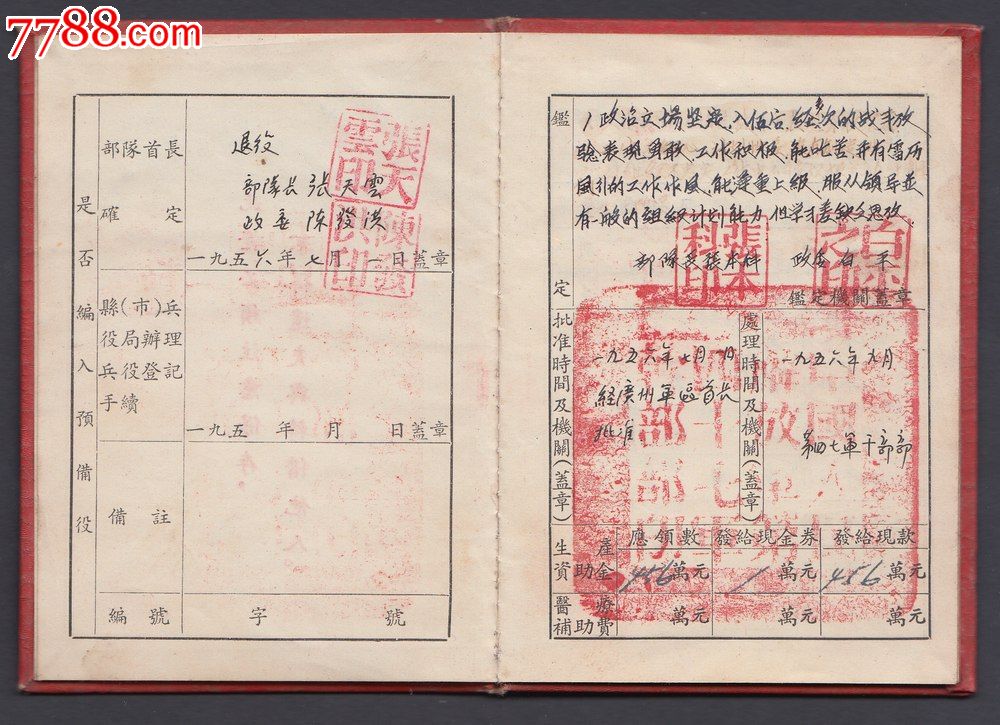 7788.com
是否編入預備役
部隊首長
確定
退役
部隊長 張天雲
政委 陳發洪
一九五六年七月一日蓋章
張天雲印
陳發洪印
縣(市)兵
役局辦理
兵役登記
手續
一九五 年 月 日蓋章
備註
編號
字 號
鑑定
1 政治立場坚定、入伍后、经多次的战斗攷
騐表現勇敢、工作积极、能吃苦、并有雷历
風引的工作作風、能遵重上級、服从領导並
有一般的組織計划能力
部隊長張本科 政委白平
張本科印
鑑定機關蓋章
批准時間及機關(蓋章)
一九五六年七月一日
経廣州軍區首長
批准
處理時間及機關(蓋章)
一九五六年九月
第四七軍干部部
生產
資助金
應領數
456萬元
發給現金券
萬元
發給現款
456萬元
醫療
補助費
萬元
萬元
萬元